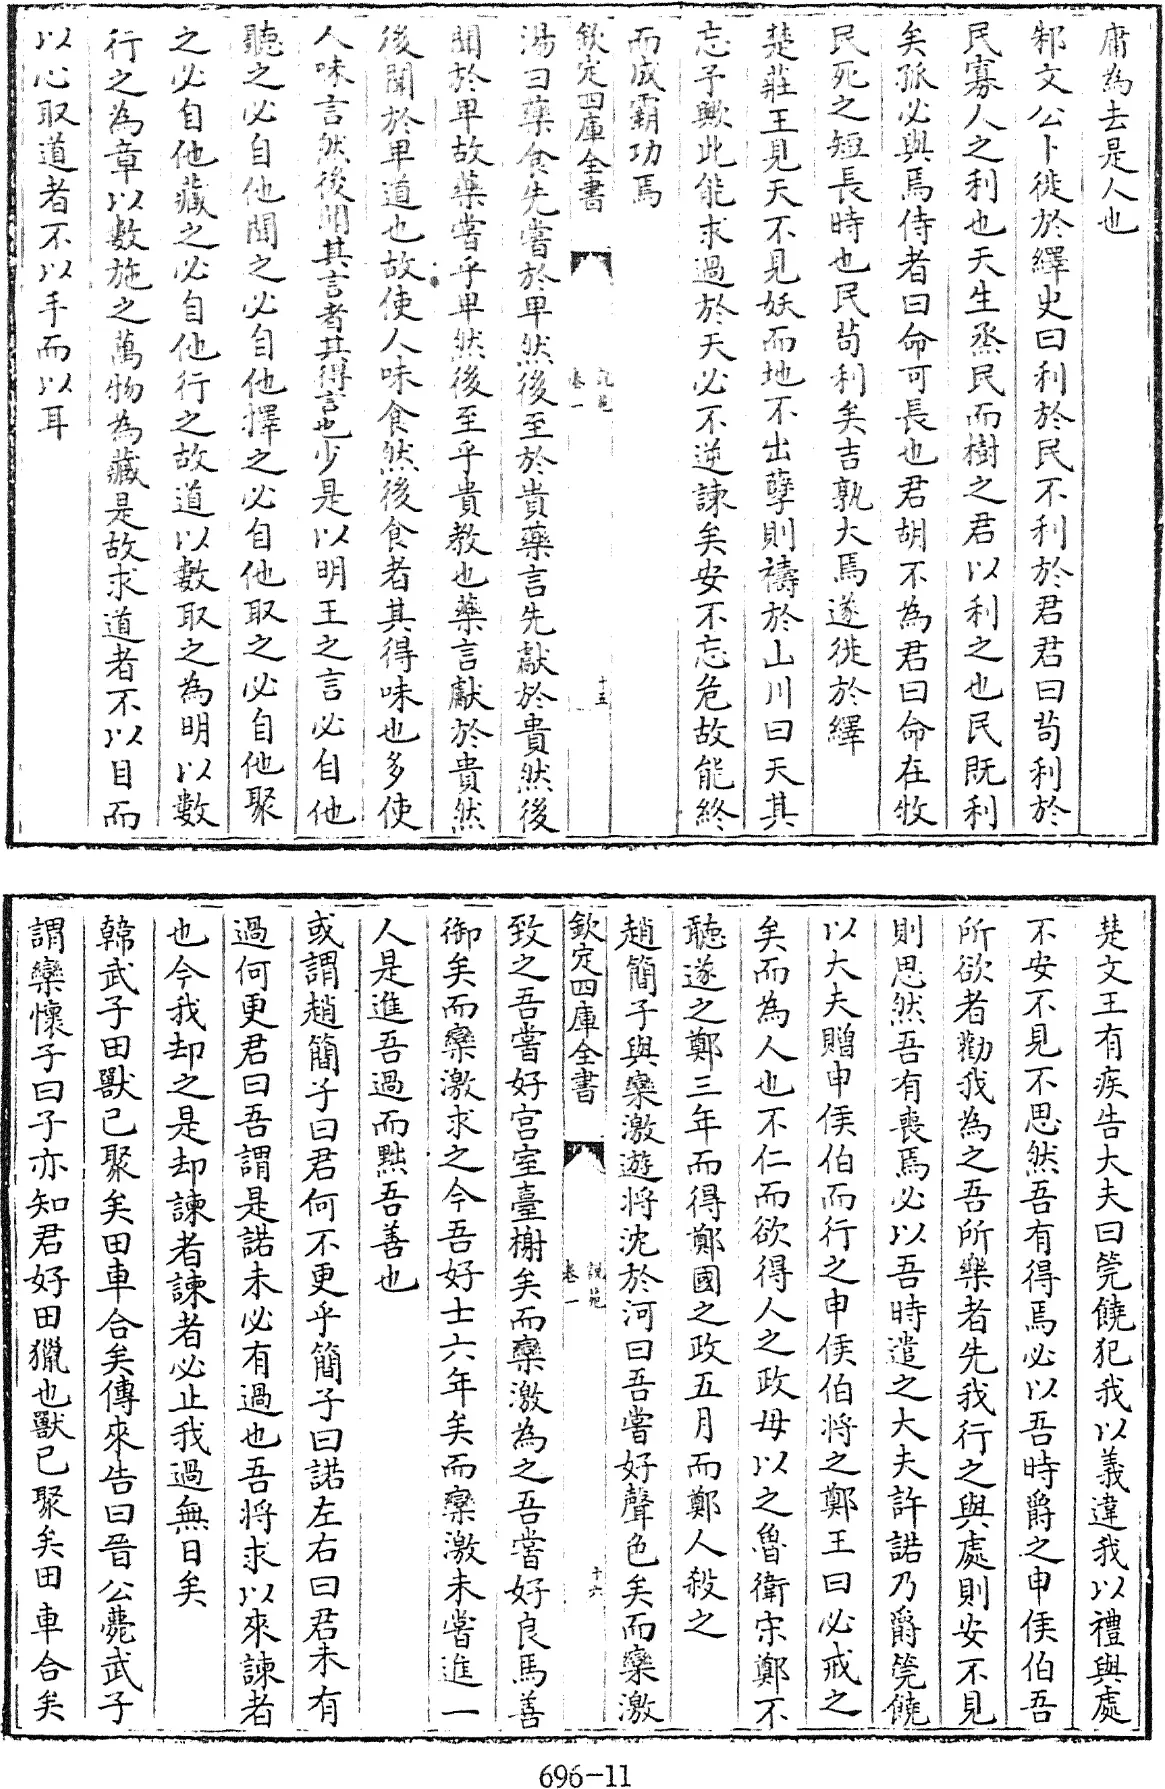 庸為去是人也
邾文公卜徙於繹史曰利於民不利於君君曰茍利於
民寡人之利也天生烝民而樹之君以利之也民既利
矣孤必與焉侍者曰命可長也君胡不為君曰命在牧
民死之短長時也民茍利矣吉孰大焉遂徙於繹
楚莊王見天不見妖而地不出孽則禱於山川曰天其
忘予歟此能求過於天必不逆諫矣安不忘危故能終
而成霸功焉
欽定四庫全書
說苑
卷一
十五
湯曰藥食先嘗於卑然後至於貴藥言先獻於貴然後
聞於卑故藥嘗乎卑然後至乎貴教也藥言獻於貴然
後聞於卑道也故使人味食然後食者其得味也多使
人味言然後聞其言者其得言也少是以明王之言必自他
聽之必自他聞之必自他擇之必自他取之必自他聚
之必自他藏之必自他行之故道以數取之為明以數
行之為章以數施之萬物為藏是故求道者不以目而
以心取道者不以手而以耳
楚文王有疾告大夫曰筦饒犯我以義違我以禮與處
不安不見不思然吾有得焉必以吾時爵之申侯伯吾
所欲者勸我為之吾所樂者先我行之與處則安不見
則思然吾有喪焉必以吾時遣之大夫許諾乃爵筦饒
以大夫贈申侯伯而行之申侯伯將之鄭王曰必戒之
矣而為人也不仁而欲得人之政毋以之魯衛宋鄭不
聽遂之鄭三年而得鄭國之政五月而鄭人殺之
趙簡子與欒激遊將沈於河曰吾嘗好聲色矣而欒激
欽定四庫全書
說苑
卷一
十六
致之吾嘗好宮室臺榭矣而欒激為之吾嘗好良馬善
御矣而欒激求之今吾好士六年矣而欒激未嘗進一
人是進吾過而黜吾善也
或謂趙簡子曰君何不更乎簡子曰諾左右曰君未有
過何更君曰吾謂是諾未必有過也吾將求以來諫者
也今我却之是却諫者諫者必止我過無日矣
韓武子田獸已聚矣田車合矣傳來告曰晉公薨武子
謂欒懷子曰子亦知君好田獵也獸已聚矣田車合矣
696-11